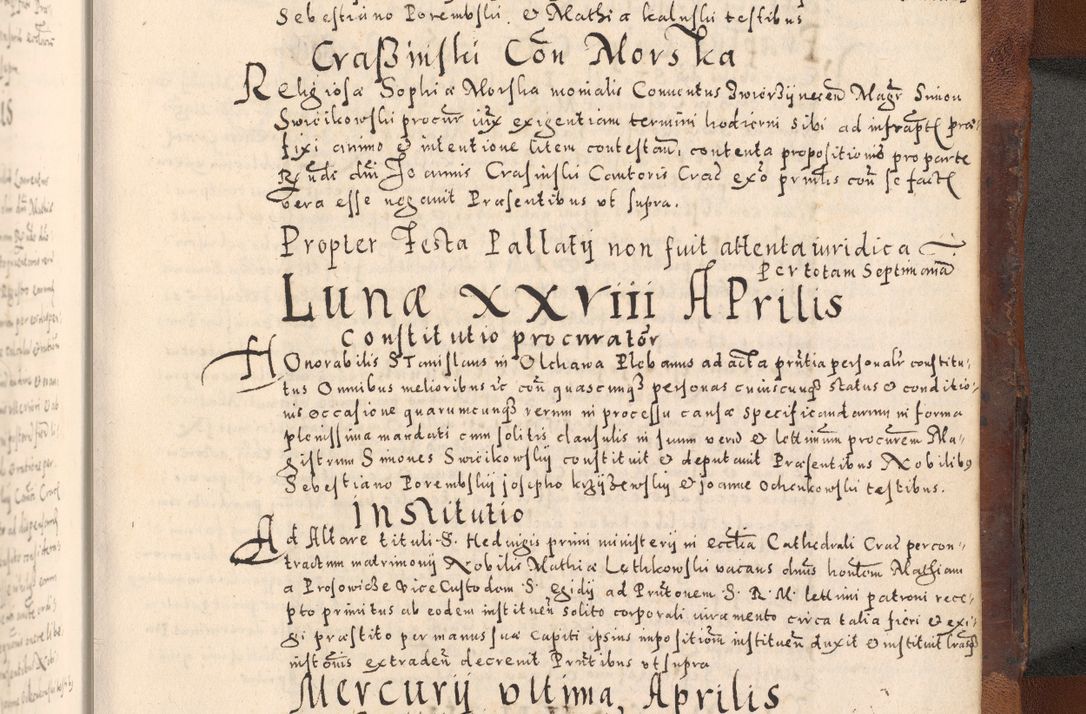 Sebestiano Porembski. & Mathia kaluski testibus
Craßinski Con Morska
Religiosa Sophia Morska monialis Conuentus Zwierzÿnecen Magr Simon
Swiecikowski procur iux exigentiam termini hodierni sibi ad infrapt præ⸗
fixi animo & intentione litem contestan, contenta propositionis pro parte
Rndi dni Joannis Crasinski Cantoris Crac exo printis con se fact
vera esse negauit Præsentibus vt supra.
Propter Festa Pallatij non fuit attenta iuridica
Per totam Septimana
Lunæ XXVIII APrilis
Constitutio procurator
HOnorabilis STanislaus in Olchawa Plebanus ad acta prntia personalr constitu⸗
tus Omnibus melioribus &c con quascunqz personas cuiuscunqz status & conditio⸗
nis occasione quarumcunqz rerum in processu causæ specificandarum in forma
plenissima mandati cum solitis clausulis in suum verum & lettimum procurem Ma⸗
gistrum Simones Swiecikowskij constituit & deputauit Præsentibus Nobilibus
Sebestiano Porembskij josepho krzÿzewskij & joanne Ochenkowski testibus.
Institutio
Ad Altare tituli S. Heduigis primi ministerij in ecclia Cathedrali Crac per con⸗
tractum matrimonij Nobilis Mathiæ Lethkowski vacans dnus hontem Mathiam
a Prosowicze Vice Custodem S. Egidij ad Prntonem S. R. M. lettimi patroni rece⸗
pto primitus ab eodem instituen solito corporali iuramento circa talia fieri & exi⸗
gi præstito per manus suæ Capiti ipsius impositionem instituen duxit & instituit lrasqz
inst onis extraden decreuit Prntibus vt supra
Mercurij vltima, Aprilis